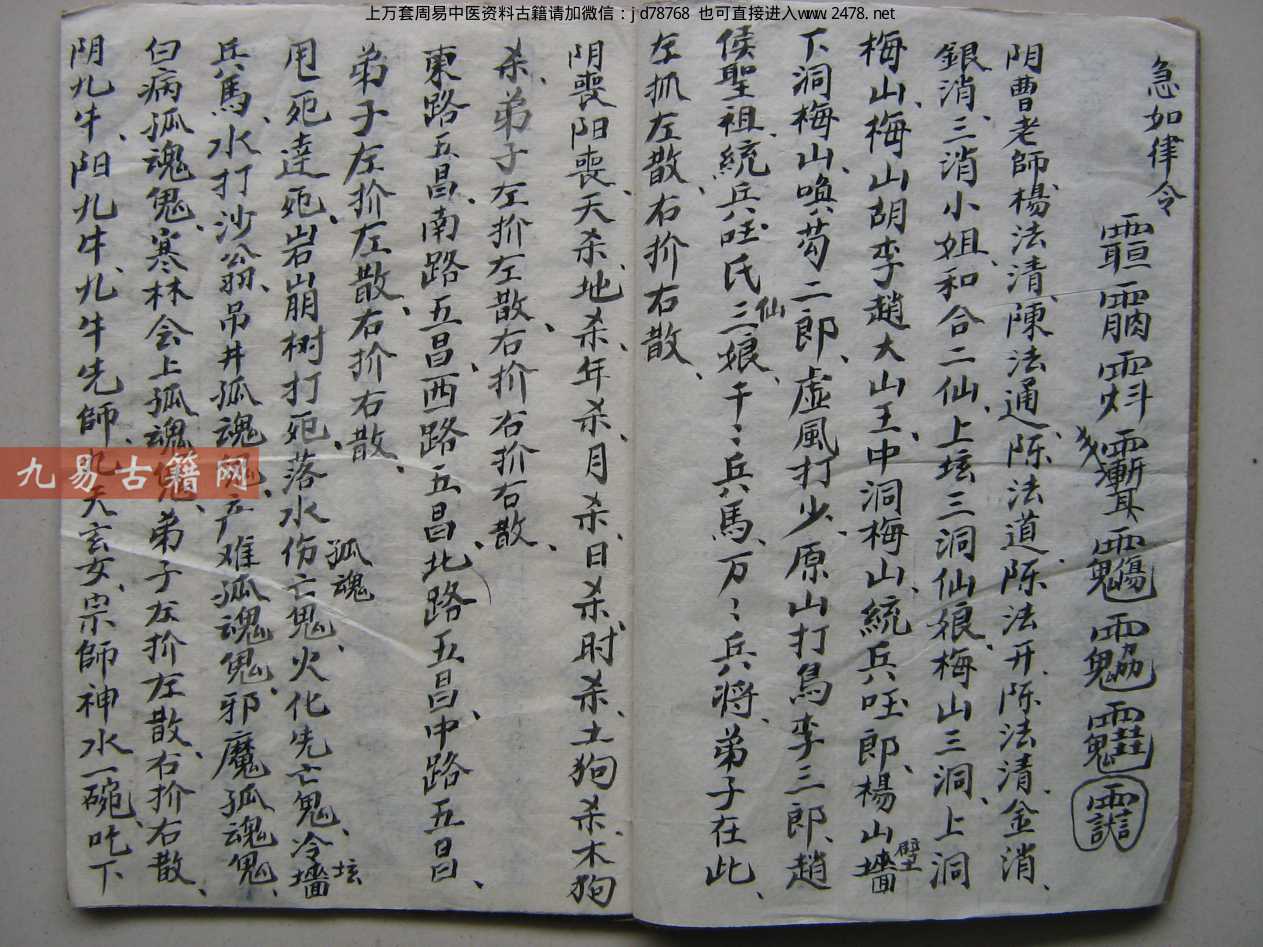 上万套周易中医资料古籍请加微信：jd78768 也可直接进入www.2478.net
急如律令
阴曹老師楊法清、陳法通、陈法道、陈法开、陈法清、金消、
銀消、三消小姐、和合二仙、上坛三洞仙娘、梅山三洞、上洞
梅山、梅山胡李趙大山王、中洞梅山、統兵呸郎、楊山墻壁
下洞梅山、喚芶二郎、虚風打少、原山打鳥李三郎、趙
侯聖祖、統兵呸氏三仙娘、千〻兵馬、万〻兵将、弟子在此、
左抓左散、右扴右散、
阴喪阳喪、天杀地杀、年杀、月杀、日杀、时杀、土狗杀、木狗
杀、弟子左扴左散、右扴右扴右散、
東路五昌、南路五昌、西路五昌、北路五昌、中路五昌、
弟子左扴左散、右扴右散、
甩死達死、岩崩树打死、落水伤亡鬼、火化先亡鬼、冷墻坛
孤魂
兵馬、水打沙公翁、吊井孤魂鬼、产难孤魂鬼、邪魔孤魂鬼、
白病孤魂鬼、寒林会上孤魂鬼、弟子左扴左散、右扴右散、
阴九牛、阳九牛、九牛先師、九天玄女、宗師神水一碗、吒下
九易古籍网